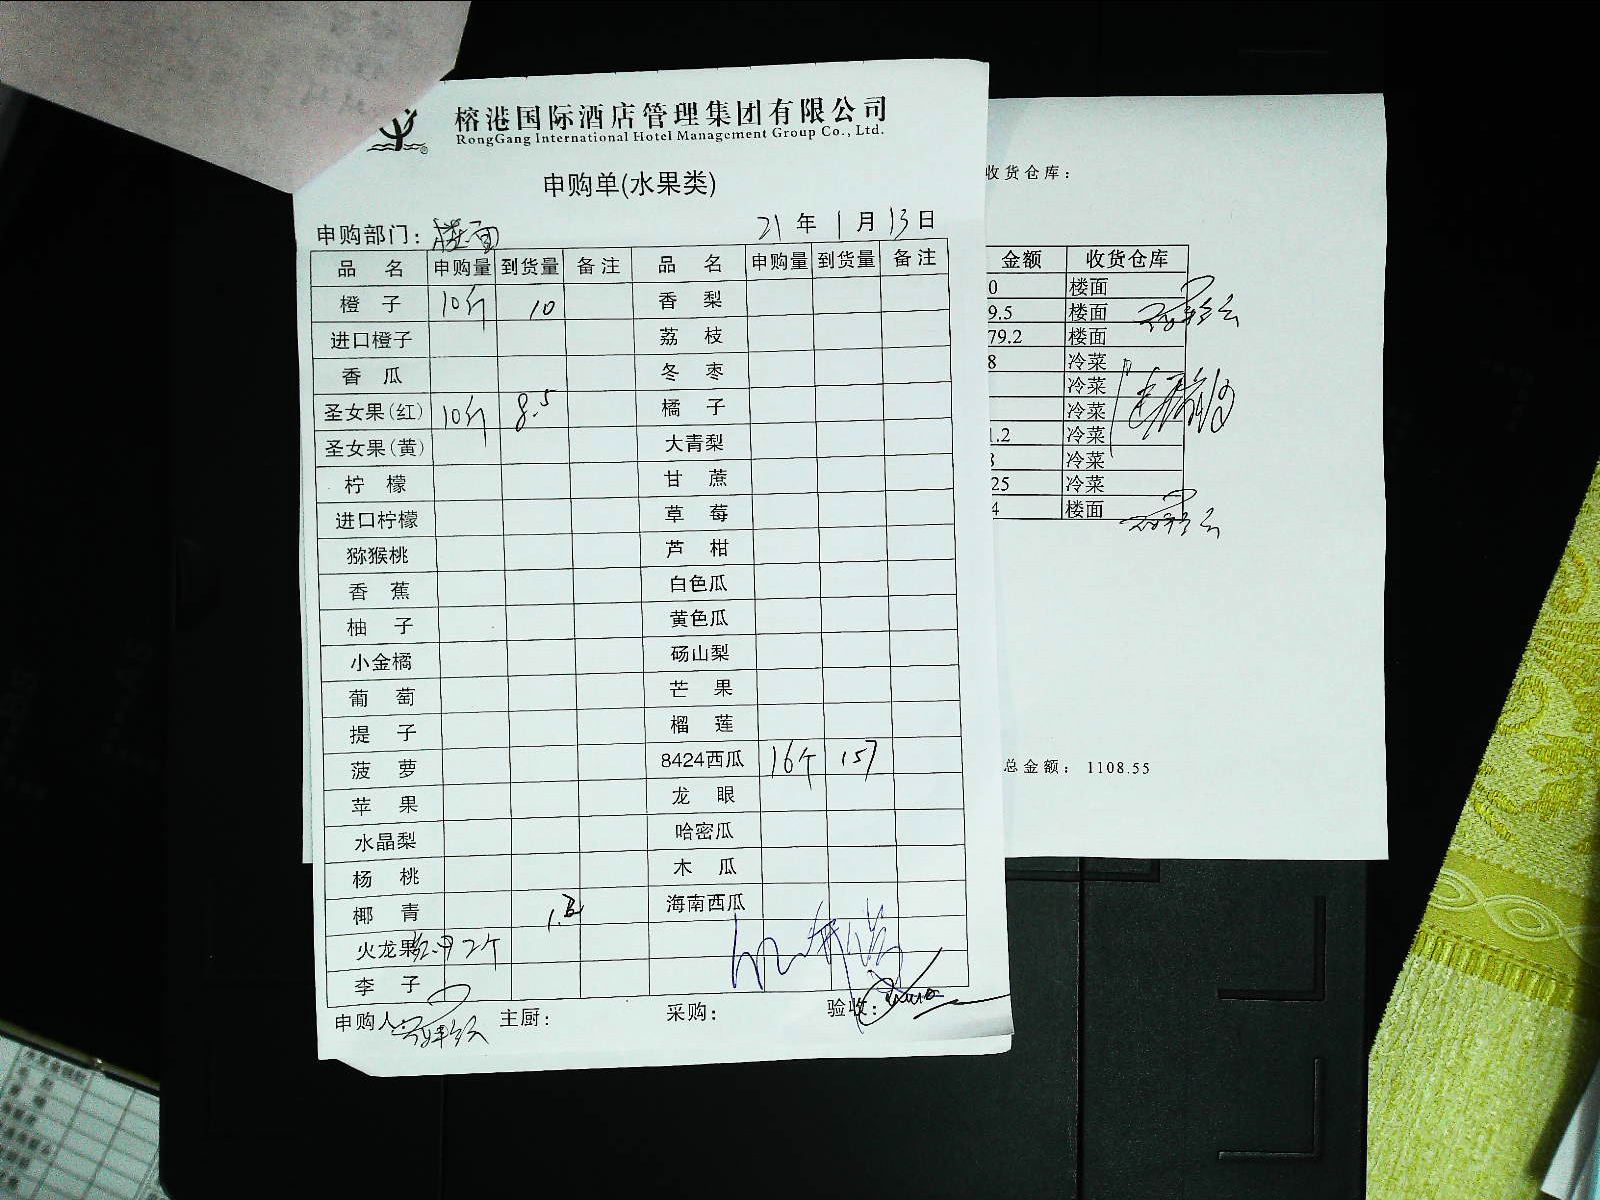 榕港国际酒店管理集团有限公司
RongGang International Hotel Management Group Co., Ltd.
申购单(水果类)
申购部门：楼面 21年1月13日
品名 申购量 到货量 备注 品名 申购量 到货量 备注
橙子 10斤 10 香梨
进口橙子 荔枝
香瓜 冬枣
圣女果(红) 10斤 8.5 橘子
圣女果(黄) 大青梨
柠檬 甘蔗
进口柠檬 草莓
猕猴桃 芦柑
香蕉 白色瓜
柚子 黄色瓜
小金橘 砀山梨
葡萄 芒果
提子 榴莲
菠萝 8424西瓜 16个 157
苹果 龙眼
水晶梨 哈密瓜
杨桃 木瓜
椰青 海南西瓜
火龙果 2个
李子
申购人: 主厨: 采购: 验收:
收货仓库：
金额 收货仓库
0 楼面
9.5 楼面
79.2 楼面
8 冷菜
冷菜
冷菜
1.2 冷菜
冷菜
25 冷菜
4 楼面
总金额：1108.55